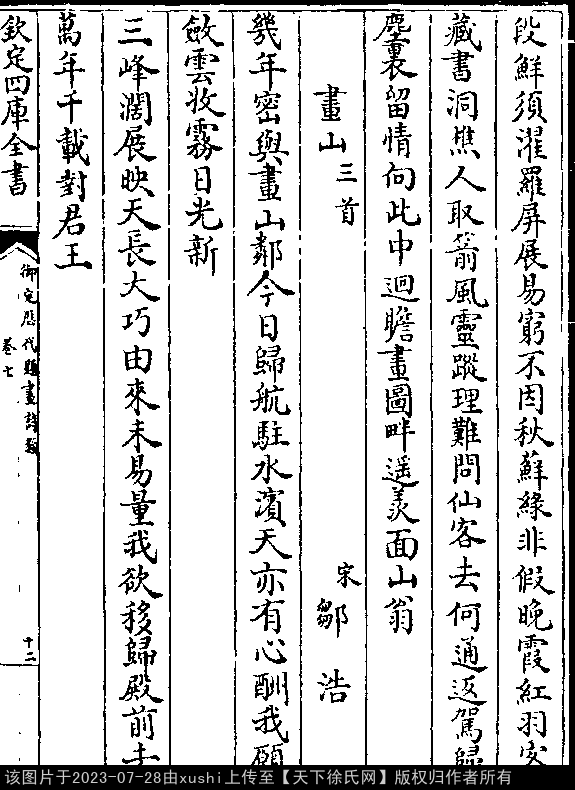 段鮮須濯羅屏展易窮不因秋蘇緣非假晚霞紅羽
藏書洞樵人取箭風靈蹤理難問仙客去何通返駕歸
塵裏留情向此中迴瞻畫圖畔遥羨面山翁
畫山三首 宋鄒浩
幾年密與畫山鄰今日歸航駐水濱天亦有心酬我願
斂雲收霧日光新
三峰濶展映天長大巧由來未易量我欲移歸殿前去
萬年千載對君王
欽定四庫全書
御定歷代題畫詩類
卷七
十二
该图片于2023-07-28由xushi上传至【天下徐氏网】版权归作者所有